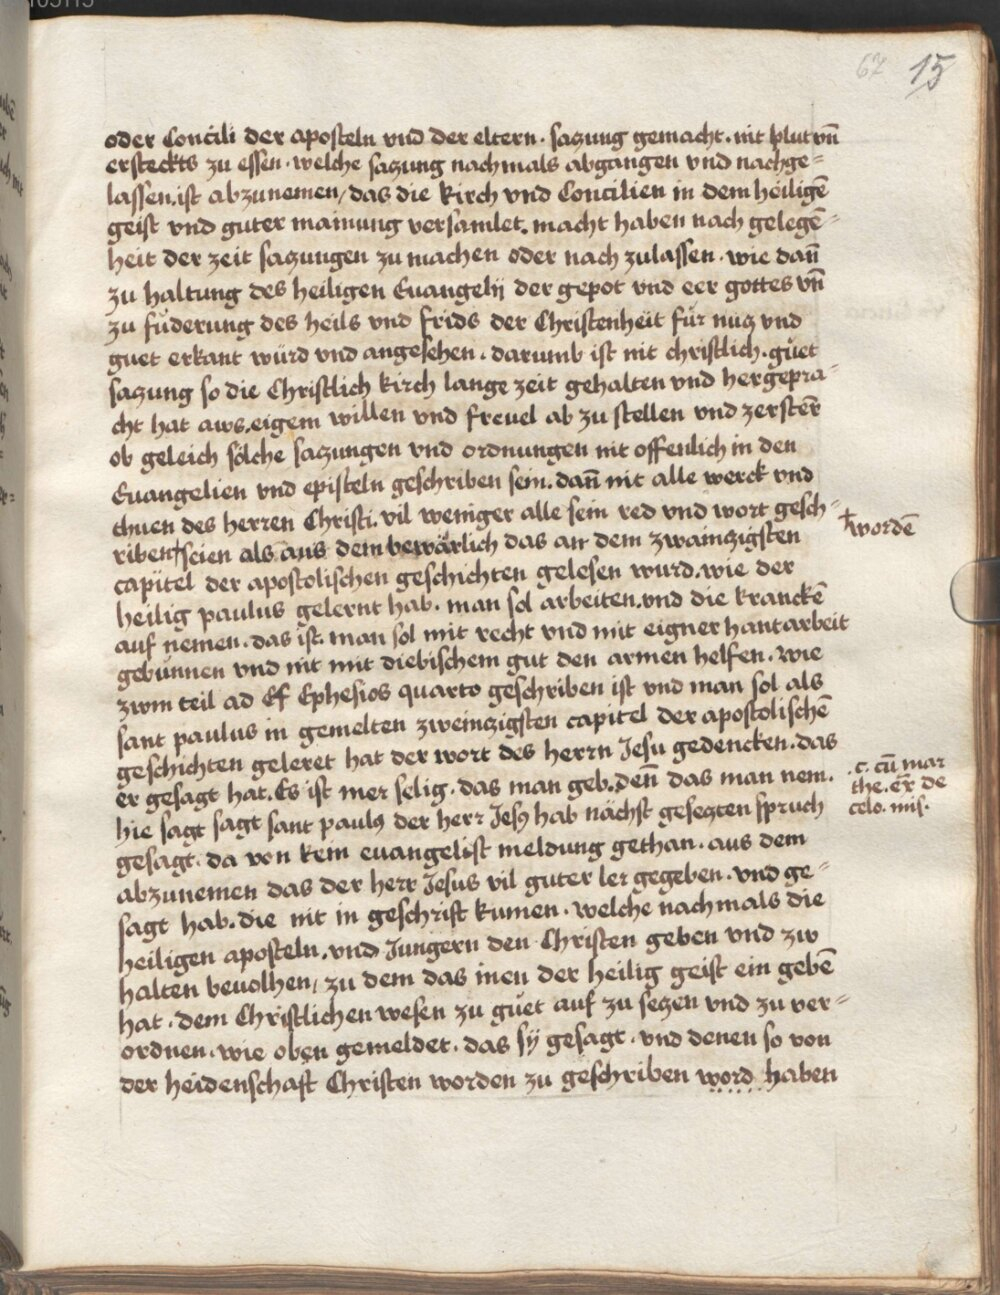 67 15
oder Concili der aposteln vnd der eltern. saczung gemacht. nit plut vn̄
ersteckts zu essen. welche saczung nachmals abgangen vnd nachge=
lassen. ist abzunemen / das die kirch vnd Concilien in dem heiligē
geist vnd guter mainung versamlet. macht haben nach gelegē=
heit der zeit saczungen zu machen oder nach zulassen. wie dan̄
zu haltung des heiligen Euangelij der gepot vnd eer gottes vn̄
zu fuderung des heils vnd frids der Christenheit fur nucz vnd
guet erkant würd vnd angesehen. darumb ist nit christlich. guet
saczung so die Christlich kirch lange zeit gehalten vnd hergepra=
cht hat aws. eigem willen vnd freuel ab zu stellen vnd zersterē
ob geleich sölche saczungen vnd ordnungen nit offenlich in den
Euangelien vnd episteln geschriben sein. dan̄ nit alle werck vnd
thuen des herren Christi. vil weniger alle sein red vnd wort gesch=
riben † seien als aus dem bewärlich das an dem zwainczigsten
† wordē
capitel der apostolischen geschichten gelesen wurd. wie der
heilig paulus gelernt hab. man sol arbeiten. vnd die kranckē
auf nemen. das ist. man sol mit recht vnd mit eigner hantarbeit
gebunnen vnd nit mit diebischem gut den armen helfen. wie
zwm teil ad Ef Ephesios quarto geschriben ist vnd man sol als
sant paulus in gemelten zweinczigsten capitel der apostolischē
geschichten geleret hat der wort des herrn Jesu gedencken. das
er gesagt hat. Es ist mer selig. das man geb. den̄ das man nem.
.c. cū mar
the. ex̄ de
celo. mis.
hie sagt sagt sant pauls der herr Jesus hab nächst gesegten spruch
gesagt. da von kein euangelist meldung gethan. aus dem
abzunemen das der herr Jesus vil guter ler gegeben. vnd ge=
sagt hab. die nit in geschrift kumen. welche nachmals die
heiligen aposteln. vnd Jungern den Christen geben vnd zw
halten beuolhen / zu dem das inen der heilig geist ein gebē
hat. dem Christlichen wesen zu guet auf zu seczen vnd zu ver=
ordnen. wie oben gemeldet. das sy gesagt. vnd denen so von
der heidenschaft Christen worden zu geschriben word haben